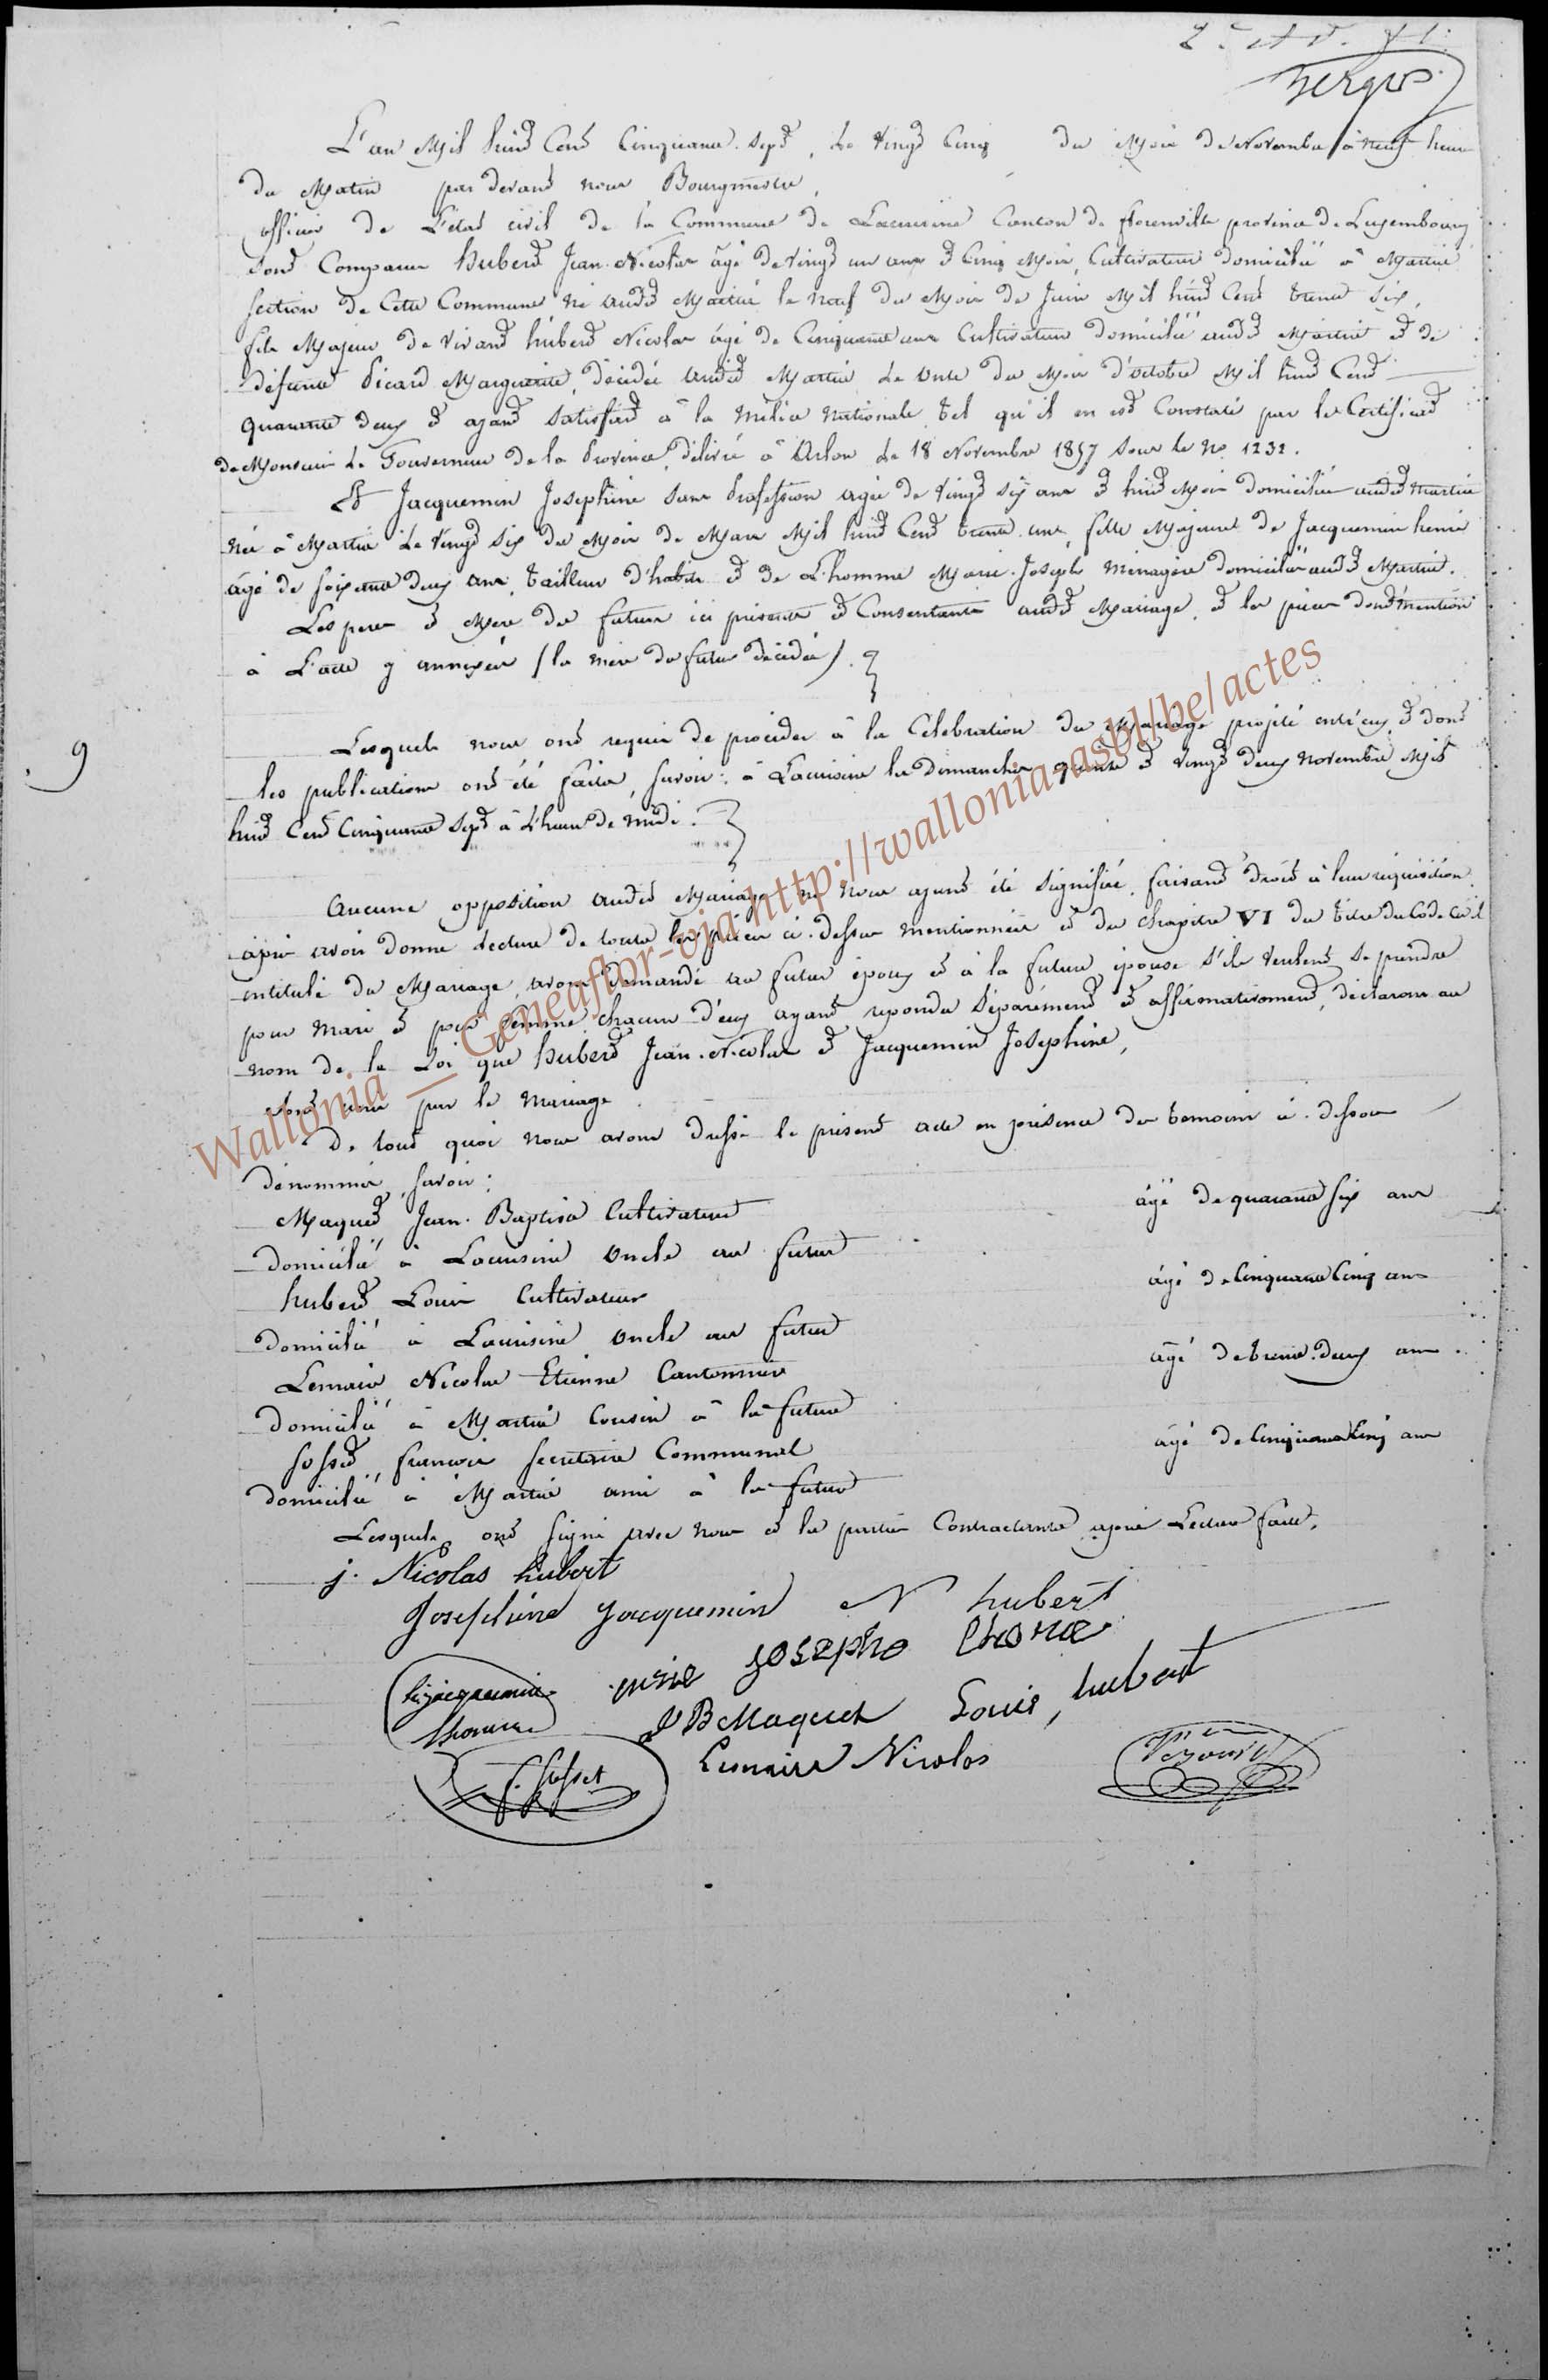 L'an Mil huit Cent Cinquante Sept, Le Vingt Cinq du Mois de Novembre à neuf heures
du Matin par devant nous Bourgmestre,
officier de L'état civil de la Commune de Lacuisine Canton de florenville province de Luxembourg
Sont Comparus hubert Jean-Nicolas âgé de Vingt un ans et Cinq Mois, Cultivateur domicilié à Martué
section de Cette Commune né audit Martué le neuf du Mois de Juin Mil huit Cent trente six,
fils Majeur de Vivant hubert Nicolas âgé de Cinquante ans Cultivateur domicilié audit Martué et de
défunte Picard Marguerite, décédée audit Martué Le onze du Mois d'octobre Mil huit Cent
quarante deux et ayant Satisfait à la Milice Nationale tel qu'il en est Constaté par le Certificat
de Monsieur Le Gouverneur de la Province, délivré à Arlon Le 18 Novembre 1857 sous le No 1232.
Et Jacquemin Josephine sans Profession agée de Vingt six ans et huit Mois domiciliée audit Martué
née à Martué Le Vingt six du Mois de Mars Mil huit Cent trente un, fille Majeure de Jacquemin henri
âgé de soixante deux ans, tailleur d'habits et de L'homme Marie-Joseph Ménagère domiciliés audit Martué.
Les pere et Mere des futurs ici présents et Consentants audit Mariage, et les pièces dont mention
à L'acte y annexées (la mère du futur décédée).
Lesquels nous ont requis de procéder à la Célébration du Mariage projeté entr'eux et dont
les publications ont été faites, savoir: à Lacuisine les dimanches quinze et vingt deux novembre Mil
huit Cent Cinquante Sept à L'heure de midi.
Aucune opposition audit Mariage ne nous ayant été signifiée, faisant droit à leur réquisition
après avoir donné Lecture de toutes les pièces ci-dessus mentionnées et du chapitre VI du titre du Code Civil
intitulé du Mariage, avons demandé au futur époux et à la future épouse s'ils veulent se prendre
pour mari et pour femme, chacun d'eux ayant repondu Séparément et affirmativement, déclarons au
nom de la Loi que hubert Jean-Nicolas et Jacquemin Josephine,
sont unis par le Mariage.
De tout quoi nous avons dressé le présent acte en présence des temoins ci-dessous
dénommés, savoir:
Maquet Jean-Baptiste Cultivateur âgé de quarante six ans
domicilié à Lacuisine oncle au futur
hubert Louis Cultivateur âgé de Cinquante Cinq ans
domicilié à Lacuisine oncle au futur
Lemaire Nicolas Etienne Cantonnier âgé de trente-deux ans.
domicilié à Martué Cousin à la future
fosset, françois secrétaire Communal âgé de Cinquante Cinq ans
domicilié à Martué ami à la future
Lesquels ont signé avec nous et les parties Contractantes après Lecture faite.
j. Nicolas hubert
Josephine Jacquemin N hubert
marie josephe lhome
hjacquemin
lhomme
JB Maquet Louis, hubert
f. fosset Lemaire Nicolas
9
Wallonia — Geneaflor-oja http://wallonia-asbl/be/actes